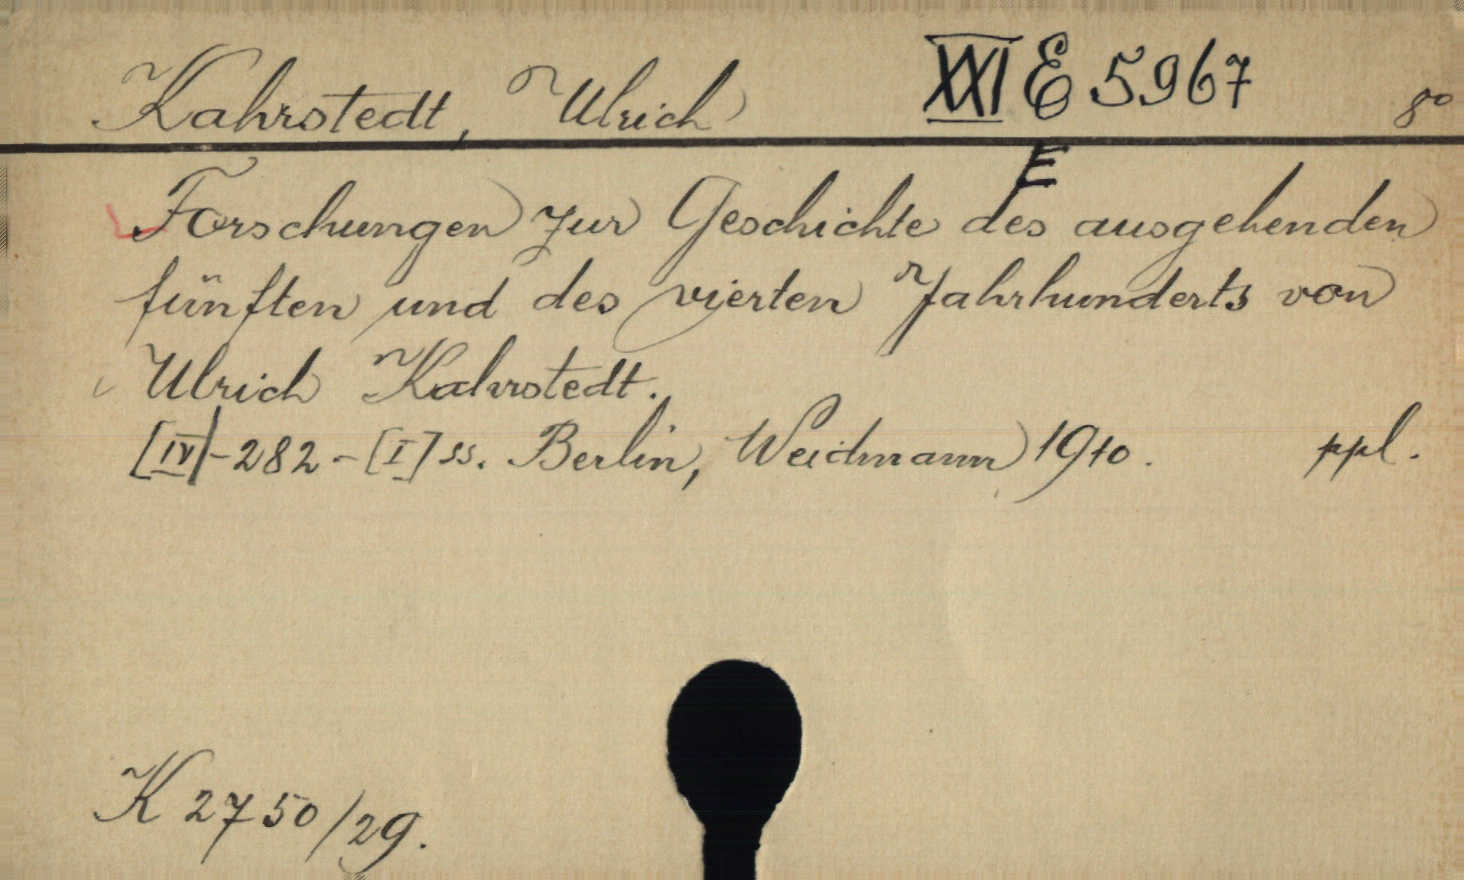 Kahrstedt, Ulrich XXI E 5967 8°
E
Forschungen zur Geschichte des ausgehenden
fünften und des vierten Jahrhunderts von
Ulrich Kahrstedt.
[IV]-282-[I] ss. Berlin, Weidmann 1910. ppl.
K 2750/29.